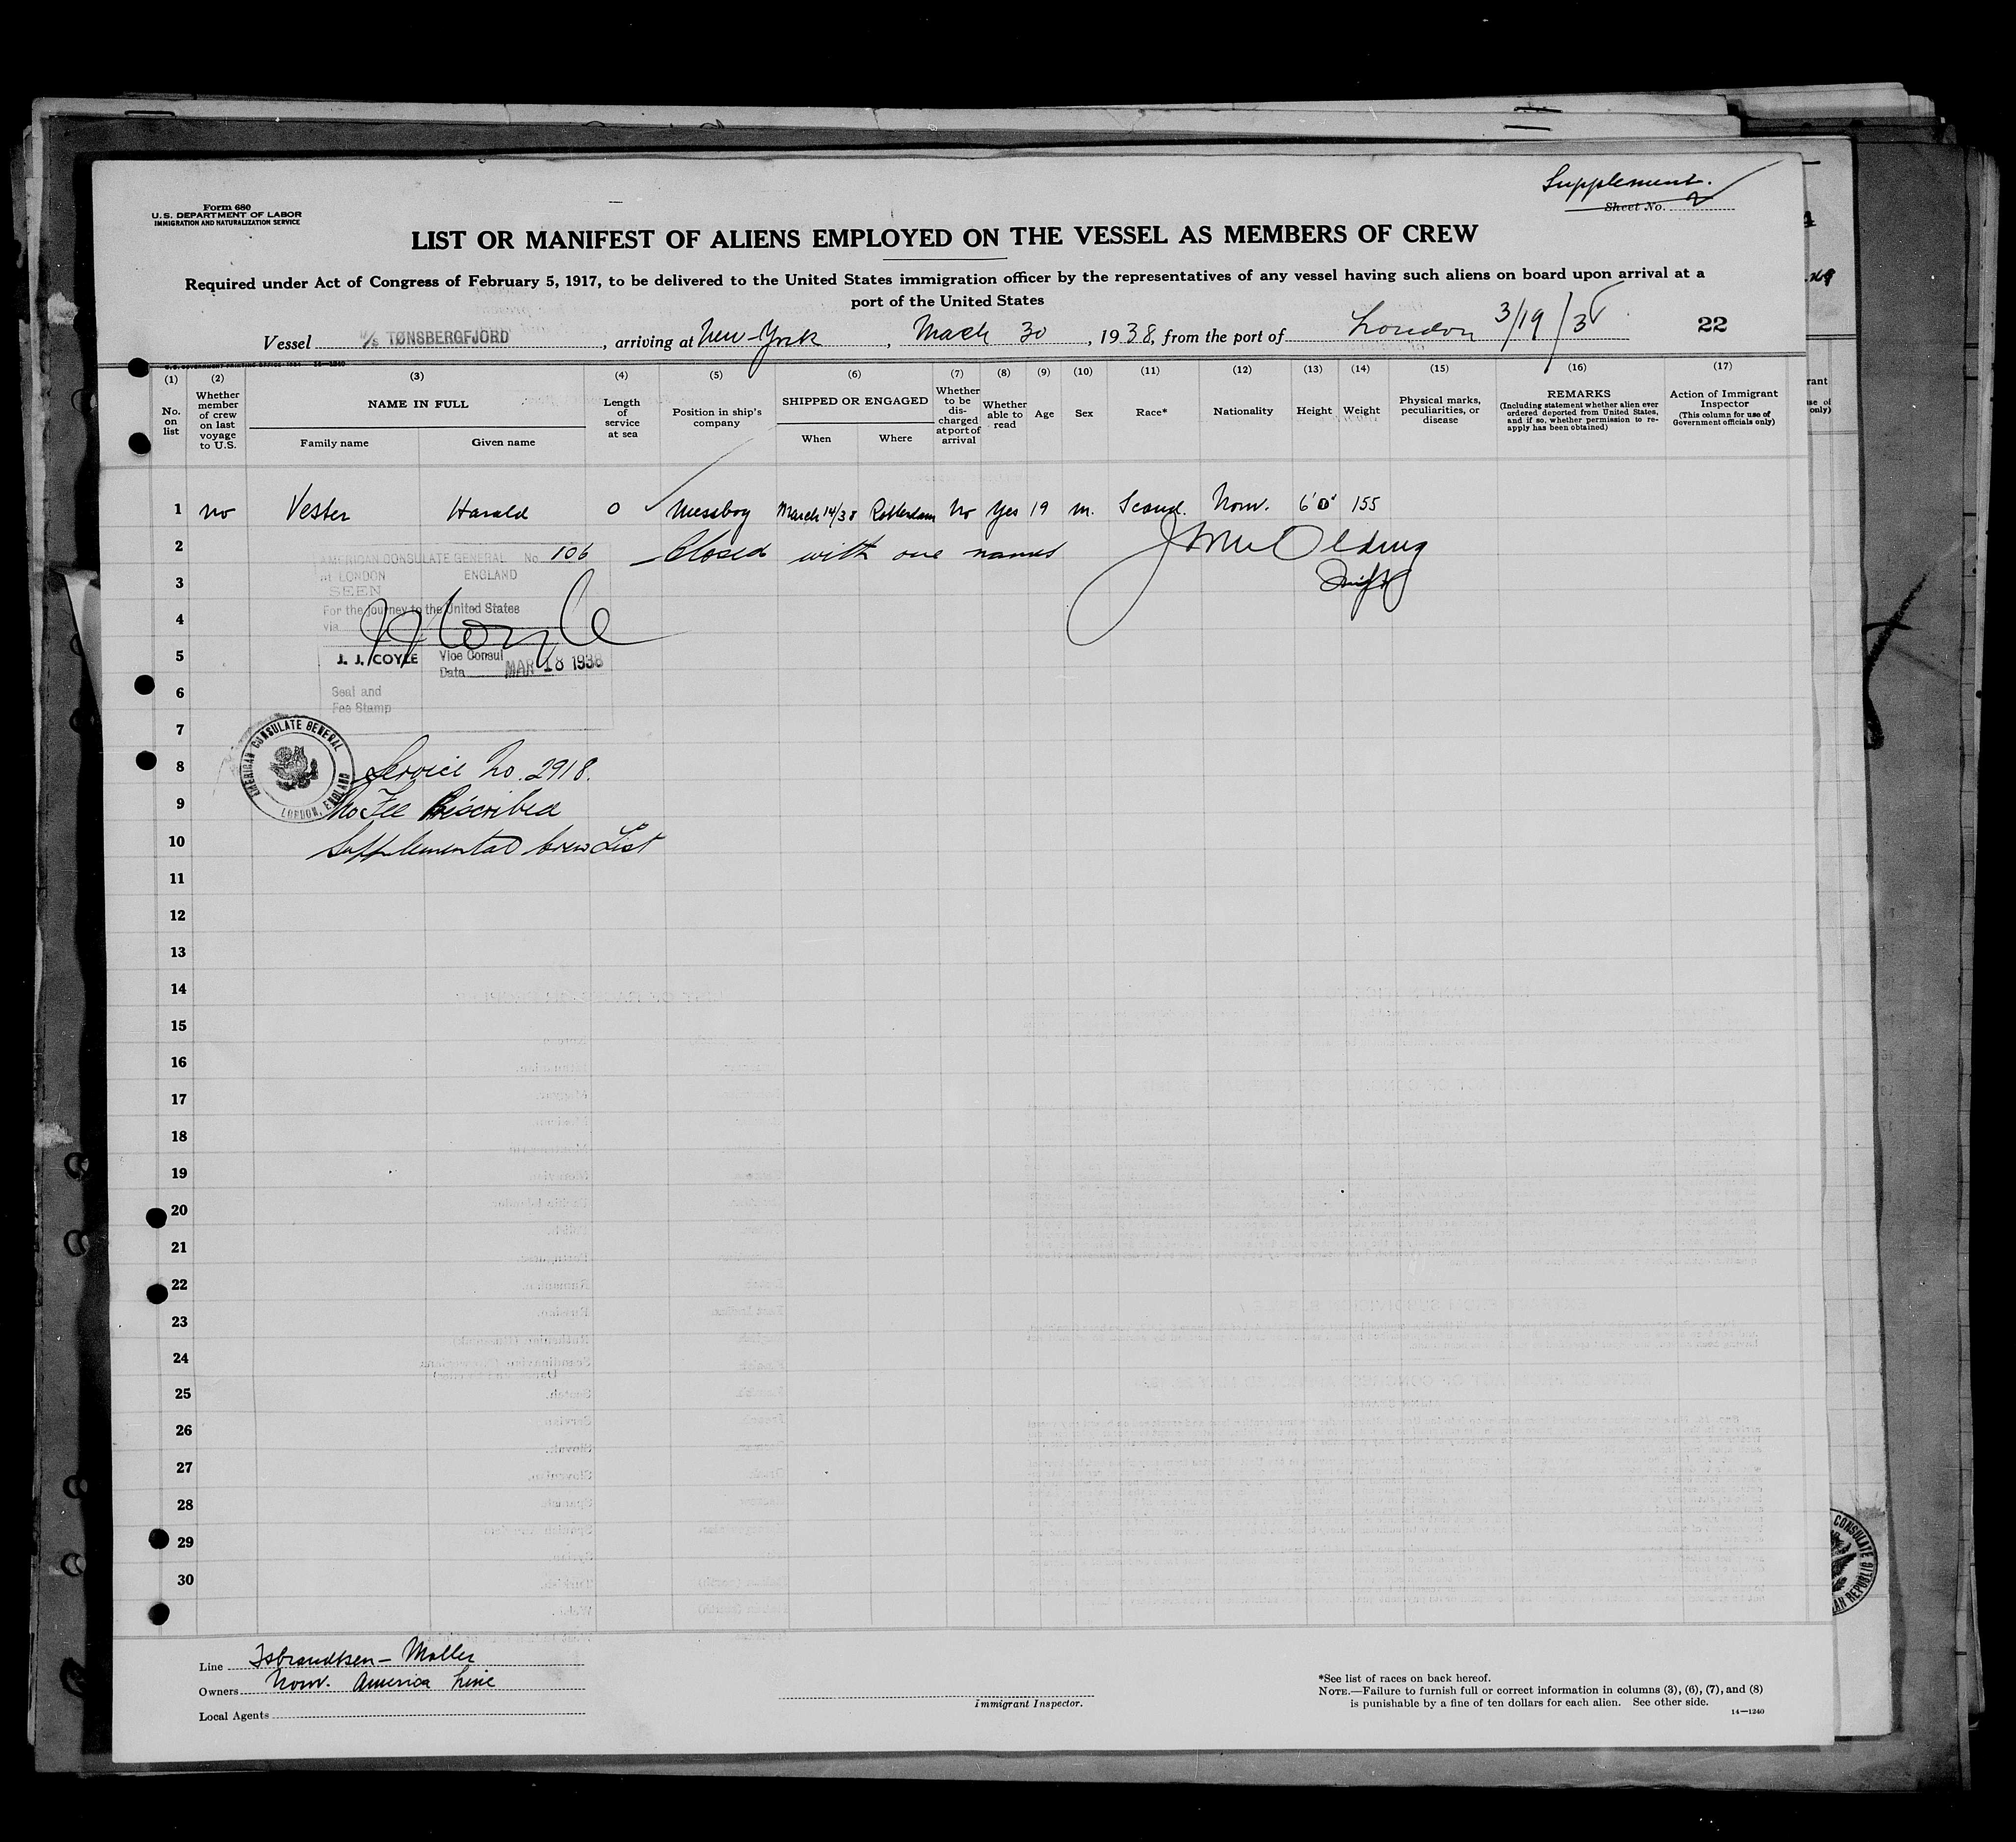 Supplement.
Form 680
U.S. DEPARTMENT OF LABOR
IMMIGRATION AND NATURALIZATION SERVICE
Sheet No. 2
LIST OR MANIFEST OF ALIENS EMPLOYED ON THE VESSEL AS MEMBERS OF CREW
Required under Act of Congress of February 5, 1917, to be delivered to the United States immigration officer by the representatives of any vessel having such aliens on board upon arrival at a
port of the United States
Vessel M/S TØNSBERGFJORD, arriving at New-York, Mach 30, 1938, from the port of London 3/19/38 22
U.S. GOVERNMENT PRINTING OFFICE: 1934 14—1240
(1) (2) (3) (4) (5) (6) (7) (8) (9) (10) (11) (12) (13) (14) (15) (16) (17)
No. on list
Whether member of crew on last voyage to U.S.
NAME IN FULL
Family name Given name
Length of service at sea
Position in ship's company
SHIPPED OR ENGAGED
When Where
Whether to be discharged at port of arrival
Whether able to read
Age
Sex
Race*
Nationality
Height
Weight
Physical marks, peculiarities, or disease
REMARKS
(Including statement whether alien ever ordered deported from United States, and if so, whether permission to reapply has been obtained)
Action of Immigrant Inspector
(This column for use of Government officials only)
1 no Vester Harald 0 Messboy March 14/38 Rotterdam No Yes 19 m. Scand. Norw. 6'0" 155
2 Closed with one names
AMERICAN CONSULATE GENERAL No. 106
at LONDON ENGLAND
3
SEEN
For the journey to the United States
4
via
5
J. J. COYLE Vice Consul
Date MAR 18 1938
6
Seal and
Fee Stamp
7
AMERICAN CONSULATE GENERAL
LONDON, ENGLAND
8 Service No. 2918.
9 No Fee Prescribed
10 Supplemental Crew List
11
12
13
14
15
16
17
18
19
20
21
22
23
24
25
26
27
28
29
30
Line Isbrandtsen - Moller
Owners Norw. America Line
Local Agents
Immigrant Inspector.
*See list of races on back hereof.
NOTE.—Failure to furnish full or correct information in columns (3), (6), (7), and (8)
is punishable by a fine of ten dollars for each alien. See other side.
14—1240